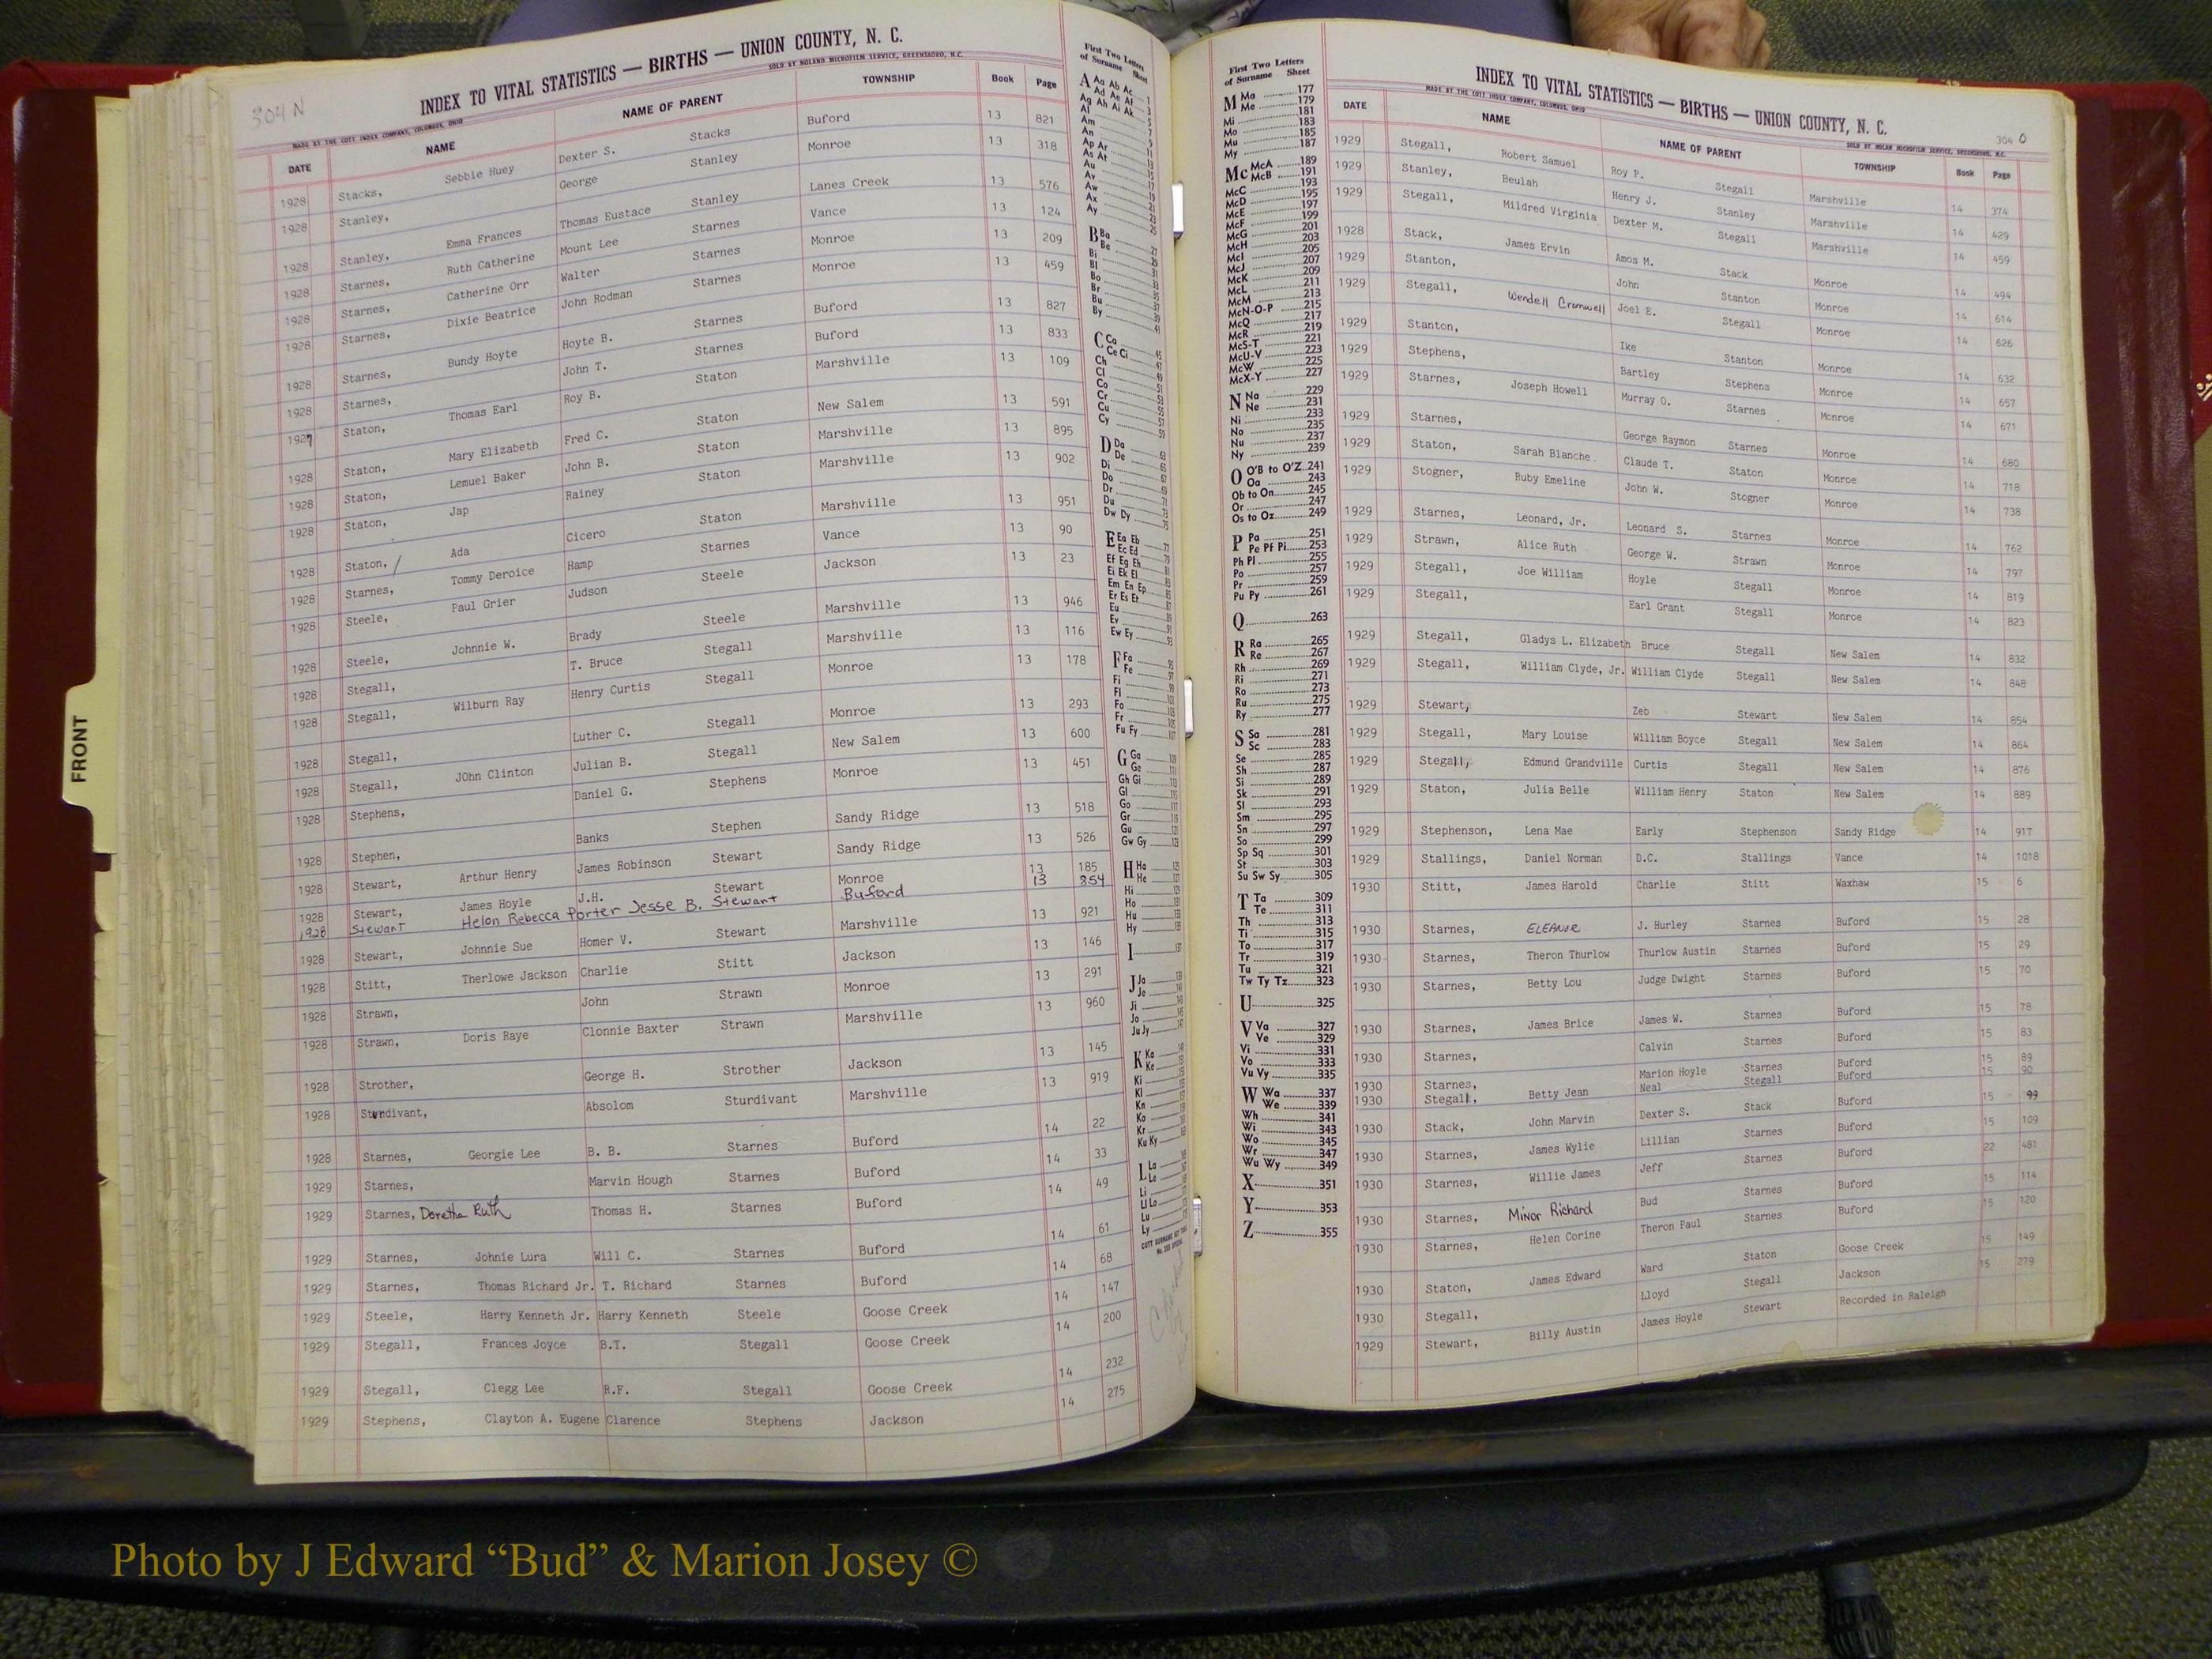 304 N
INDEX TO VITAL STATISTICS — BIRTHS — UNION COUNTY, N. C.
MADE BY THE COTT INDEX COMPANY, COLUMBUS, OHIO SOLD BY NOLAND MICROFILM SERVICE, GREENSBORO, N.C.
DATE NAME NAME OF PARENT TOWNSHIP Book Page
1928 Stacks, Sebbie Huey Dexter S. Stacks Buford 13 821
1928 Stanley, George Stanley Monroe 13 318
1928 Stanley, Emma Frances Thomas Eustace Stanley Lanes Creek 13 576
1928 Starnes, Ruth Catherine Mount Lee Starnes Vance 13 124
1928 Starnes, Catherine Orr Walter Starnes Monroe 13 209
1928 Starnes, Dixie Beatrice John Rodman Starnes Monroe 13 459
1928 Starnes, Bundy Hoyte Hoyte B. Starnes Buford 13 827
1928 Starnes, John T. Starnes Buford 13 833
1927 Staton, Thomas Earl Roy B. Staton Marshville 13 109
1928 Staton, Mary Elizabeth Fred C. Staton New Salem 13 591
1928 Staton, Lemuel Baker John B. Staton Marshville 13 895
1928 Staton, Jap Rainey Staton Marshville 13 902
1928 Staton, / Ada Cicero Staton Marshville 13 951
1928 Starnes, Tommy Deroice Hamp Starnes Vance 13 90
1928 Steele, Paul Grier Judson Steele Jackson 13 23
1928 Steele, Johnnie W. Brady Steele Marshville 13 946
1928 Stegall, T. Bruce Stegall Marshville 13 116
1928 Stegall, Wilburn Ray Henry Curtis Stegall Monroe 13 178
1928 Stegall, Luther C. Stegall Monroe 13 293
1928 Stegall, JOhn Clinton Julian B. Stegall New Salem 13 600
1928 Stephens, Daniel G. Stephens Monroe 13 451
1928 Stephen, Banks Stephen Sandy Ridge 13 518
1928 Stewart, Arthur Henry James Robinson Stewart Sandy Ridge 13 526
1928 Stewart, James Hoyle J.H. Stewart Monroe 13 185
1928 Stewart Helon Rebecca Porter Jesse B. Stewart Buford 13 854
1928 Stewart, Johnnie Sue Homer V. Stewart Marshville 13 921
1928 Stitt, Therlowe Jackson Charlie Stitt Jackson 13 146
1928 Strawn, John Strawn Monroe 13 291
1928 Strawn, Doris Raye Clonnie Baxter Strawn Marshville 13 960
1928 Strother, George H. Strother Jackson 13 145
1928 Sturdivant, Absolom Sturdivant Marshville 13 919
1928 Starnes, Georgie Lee B. B. Starnes Buford 14 22
1929 Starnes, Marvin Hough Starnes Buford 14 33
1929 Starnes, Doretha Ruth Thomas H. Starnes Buford 14 49
1929 Starnes, Johnie Lura Will C. Starnes Buford 14 61
1929 Starnes, Thomas Richard Jr. T. Richard Starnes Buford 14 68
1929 Steele, Harry Kenneth Jr. Harry Kenneth Steele Goose Creek 14 147
1929 Stegall, Frances Joyce B.T. Stegall Goose Creek 14 200
1929 Stegall, Clegg Lee R.F. Stegall Goose Creek 14 232
1929 Stephens, Clayton A. Eugene Clarence Stephens Jackson 14 275
First Two Letters
of Surname Sheet
A Aa Ab Ac
Ad Ae Af
Ag Ah Ai Ak
Al
Am
An
Ap Ar
As At
Au
Av
Aw
Ax
Ay
B Ba
Be
Bi
Bl
Bo
Br
Bu
By
C Ca
Ce Ci
Ch
Cl
Co
Cr
Cu
Cy
D Da
De
Di
Do
Dr
Du
Dw Dy
E Ea Eb
Ec Ed
Ef Eg Eh
Ei Ek El
Em En Ep
Er Es Et
Eu
Ev
Ew Ey
F Fa
Fe
Fi
Fl
Fo
Fr
Fu Fy
G Ga
Ge
Gh Gi
Gl
Go
Gr
Gu
Gw Gy
H Ha
He
Hi
Ho
Hu
Hy
I
J Ja
Je
Ji
Jo
Ju Jy
K Ka
Ke
Ki
Kl
Kn
Ko
Kr
Ku Ky
L La
Le
Li
Ll Lo
Lu
Ly
First Two Letters
of Surname Sheet
M Ma 177
Me 179
Mi 181
Mo 183
Mu 185
My 187
Mc McA 189
McB 191
McC 193
McD 195
McE 197
McF 199
McG 201
McH 203
McI 205
McJ 207
McK 209
McL 211
McM 213
McN-O-P 215
McQ 217
McR 219
McS-T 221
McU-V 223
McW 225
McX-Y 227
N Na 229
Ne 231
Ni 233
No 235
Nu 237
Ny 239
O O'B to O'Z 241
Oa 243
Ob to On 245
Or 247
Os to Oz 249
P Pa 251
Pe Pf Pi 253
Ph Pl 255
Po 257
Pr 259
Pu Py 261
Q 263
R Ra 265
Re 267
Rh 269
Ri 271
Ro 273
Ru 275
Ry 277
S Sa 281
Sc 283
Se 285
Sh 287
Si 289
Sk 291
Sl 293
Sm 295
Sn 297
So 299
Sp Sq 301
St 303
Su Sw Sy 305
T Ta 309
Te 311
Th 313
Ti 315
To 317
Tr 319
Tu 321
Tw Ty Tz 323
U 325
V Va 327
Ve 329
Vi 331
Vo 333
Vu Vy 335
W Wa 337
We 339
Wh 341
Wi 343
Wo 345
Wr 347
Wu Wy 349
X 351
Y 353
Z 355
INDEX TO VITAL STATISTICS — BIRTHS — UNION COUNTY, N. C.
304 O
MADE BY THE COTT INDEX COMPANY, COLUMBUS, OHIO SOLD BY NOLAN MICROFILM SERVICE, GREENSBORO, N.C.
DATE NAME NAME OF PARENT TOWNSHIP Book Page
1929 Stegall, Robert Samuel Roy P. Stegall Marshville 14 374
1929 Stanley, Beulah Henry J. Stanley Marshville 14 429
1929 Stegall, Mildred Virginia Dexter M. Stegall Marshville 14 459
1928 Stack, James Ervin Amos M. Stack Monroe 14 494
1929 Stanton, John Stanton Monroe 14 614
1929 Stegall, Wendell Cromwell Joel E. Stegall Monroe 14 626
1929 Stanton, Ike Stanton Monroe 14 632
1929 Stephens, Bartley Stephens Monroe 14 657
1929 Starnes, Joseph Howell Murray O. Starnes Monroe 14 671
1929 Starnes, George Raymon Starnes Monroe 14 680
1929 Staton, Sarah Blanche Claude T. Staton Monroe 14 718
1929 Stogner, Ruby Emeline John W. Stogner Monroe 14 738
1929 Starnes, Leonard, Jr. Leonard S. Starnes Monroe 14 762
1929 Strawn, Alice Ruth George W. Strawn Monroe 14 797
1929 Stegall, Joe William Hoyle Stegall Monroe 14 819
1929 Stegall, Earl Grant Stegall Monroe 14 823
1929 Stegall, Gladys L. Elizabeth Bruce Stegall New Salem 14 832
1929 Stegall, William Clyde, Jr. William Clyde Stegall New Salem 14 848
1929 Stewart, Zeb Stewart New Salem 14 854
1929 Stegall, Mary Louise William Boyce Stegall New Salem 14 864
1929 Stegall, Edmund Grandville Curtis Stegall New Salem 14 876
1929 Staton, Julia Belle William Henry Staton New Salem 14 889
1929 Stephenson, Lena Mae Early Stephenson Sandy Ridge 14 917
1929 Stallings, Daniel Norman D.C. Stallings Vance 14 1018
1930 Stitt, James Harold Charlie Stitt Waxhaw 15 6
1930 Starnes, ELEANOR J. Hurley Starnes Buford 15 28
1930 Starnes, Theron Thurlow Thurlow Austin Starnes Buford 15 29
1930 Starnes, Betty Lou Judge Dwight Starnes Buford 15 70
1930 Starnes, James Brice James W. Starnes Buford 15 78
1930 Starnes, Calvin Starnes Buford 15 83
1930 Starnes, Marion Hoyle Starnes Buford 15 89
1930 Stegall, Betty Jean Neal Stegall Buford 15 90
1930 Stack, John Marvin Dexter S. Stack Buford 15 99
1930 Starnes, James Wylie Lillian Starnes Buford 15 109
1930 Starnes, Willie James Jeff Starnes Buford 22 481
1930 Starnes, Minor Richard Bud Starnes Buford 15 114
1930 Starnes, Helen Corine Theron Paul Starnes Buford 15 120
1930 Staton, James Edward Ward Staton Goose Creek 15 149
1930 Stegall, Lloyd Stegall Jackson 15 279
1929 Stewart, Billy Austin James Hoyle Stewart Recorded in Raleigh
FRONT
Photo by J Edward “Bud” & Marion Josey ©